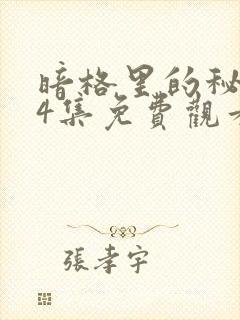 暗格里的秘
4集免費觀
張孝宇